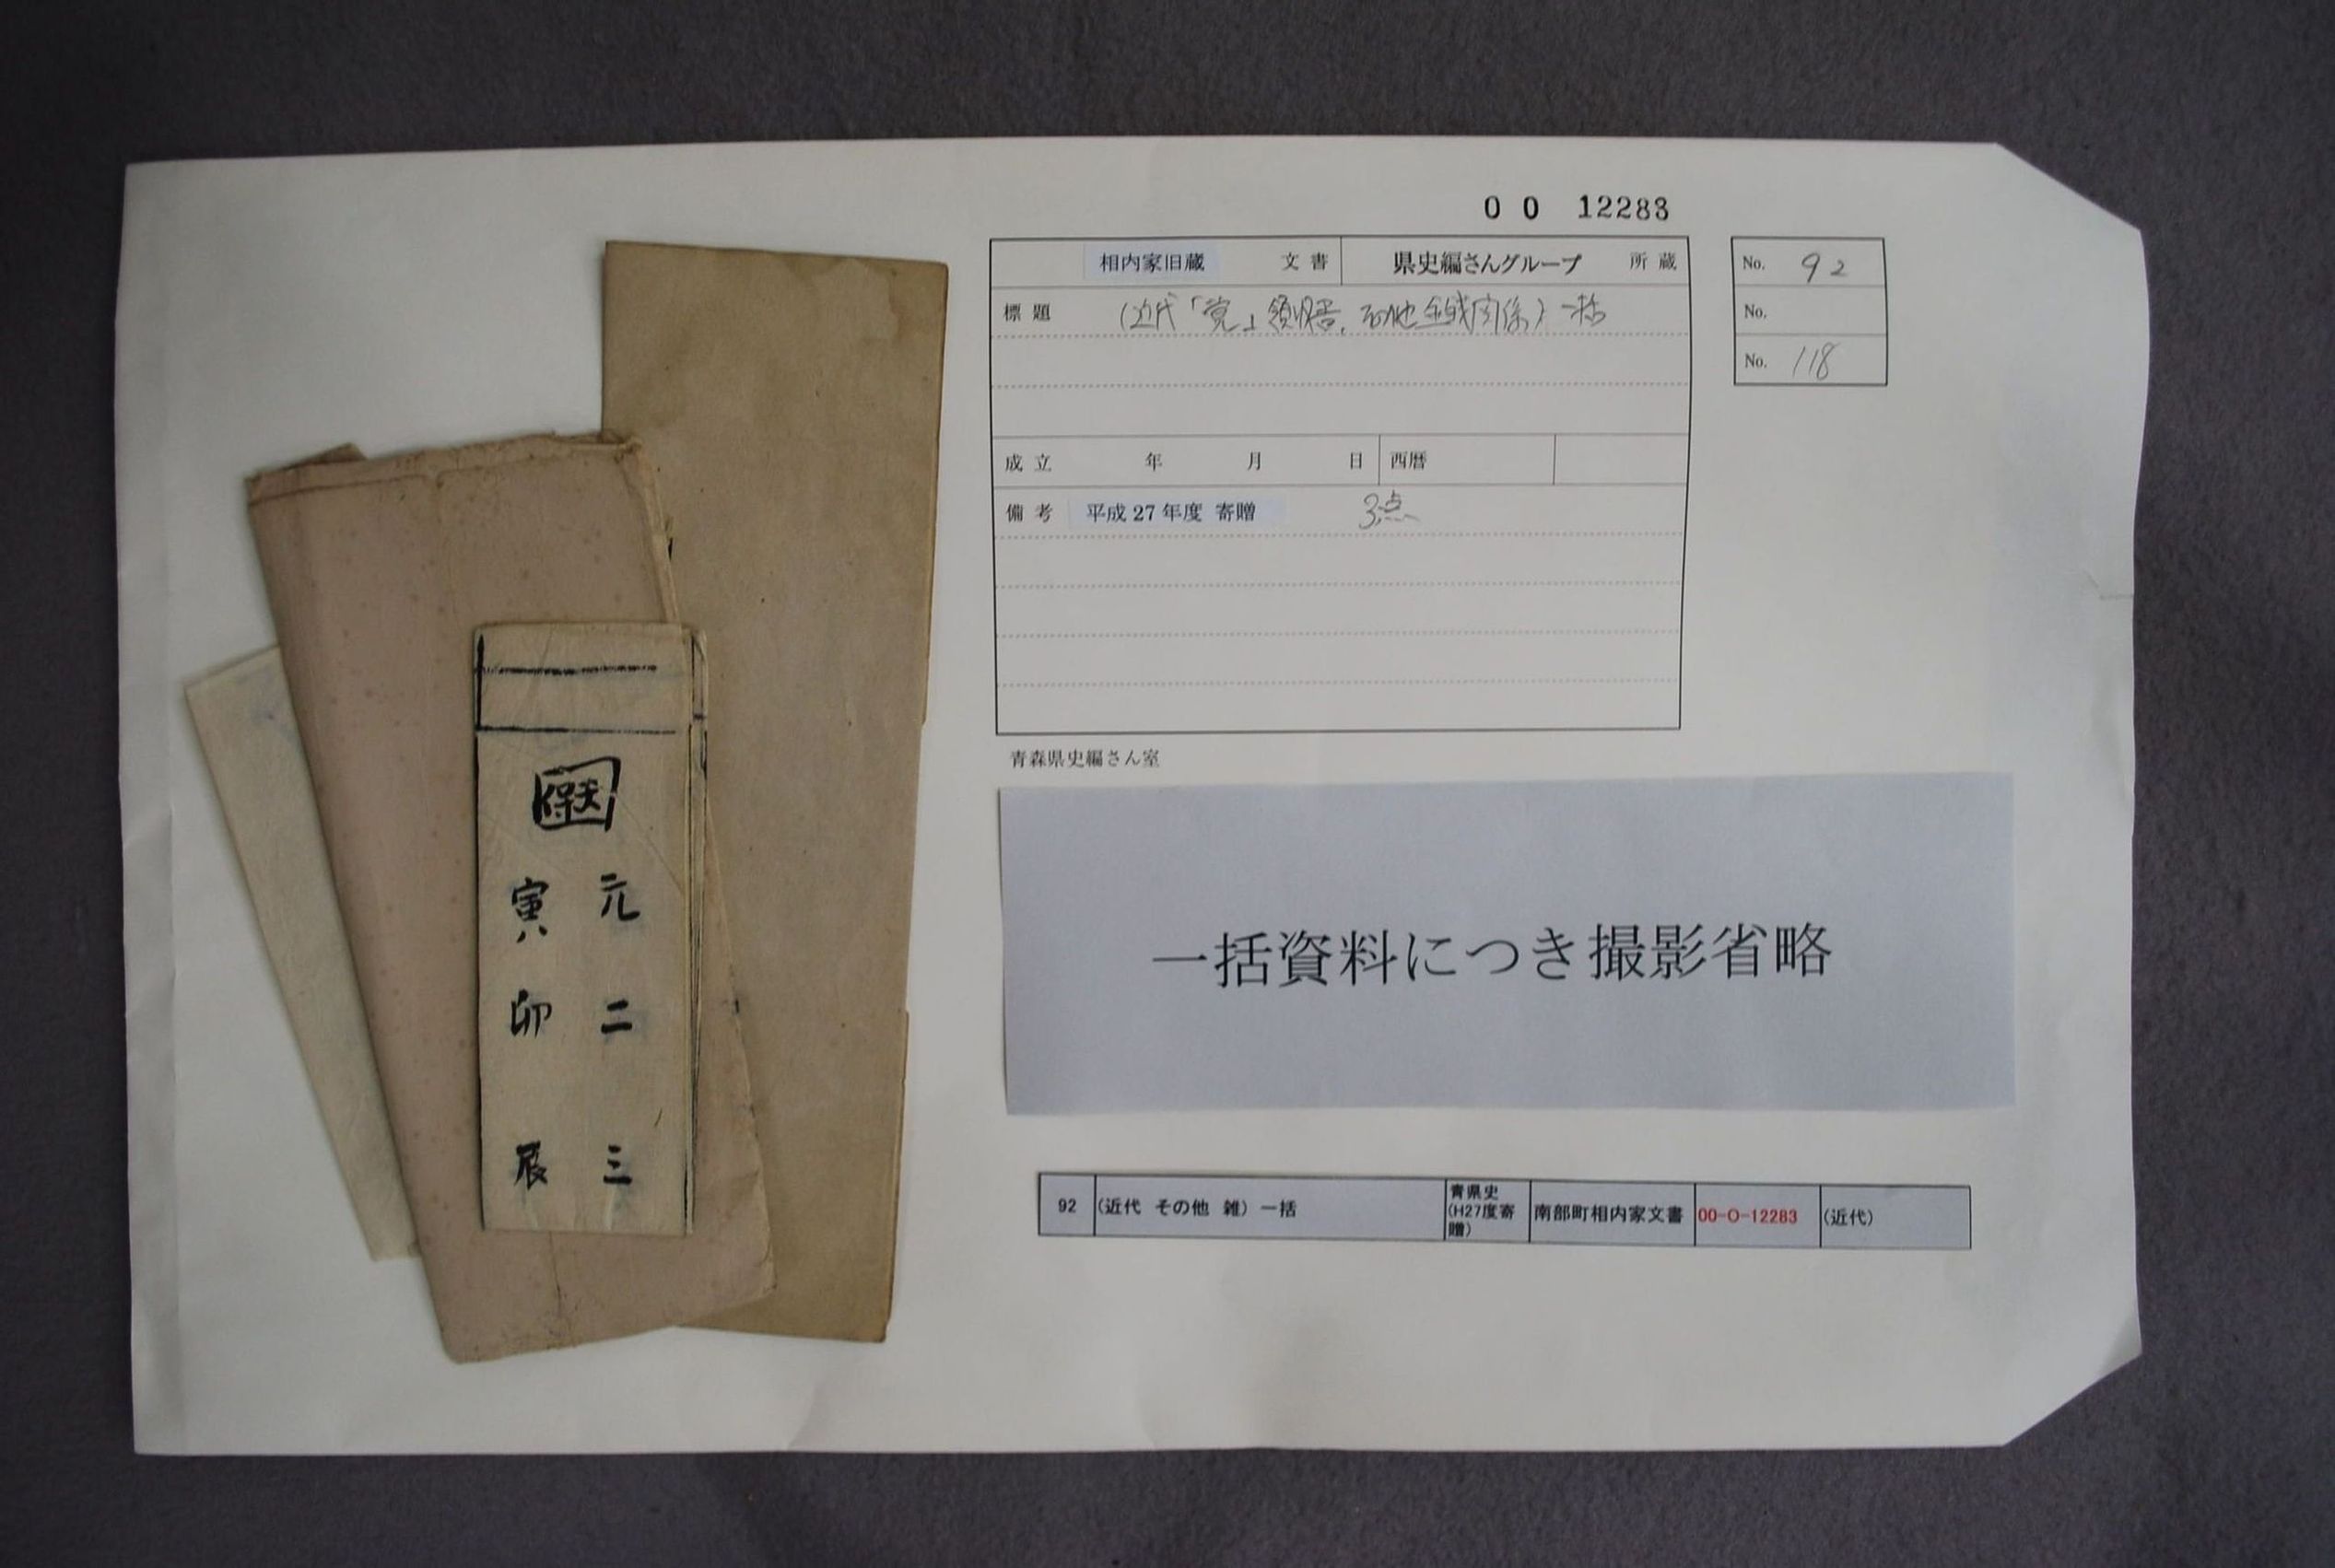 00 12283
相内家旧蔵 文書 県史編さんグループ 所蔵
標題 (近代「覚」領収書、その他金銭関係)一括
成立 年 月 日 西暦
備考 平成27年度 寄贈 3点
No. 92
No.
No. 118
青森県史編さん室
一括資料につき撮影省略
92 (近代 その他 雑) 一括 青県史(H27度寄贈) 南部町相内家文書 00-O-12283 (近代)
天保
元 二 三
寅 卯 辰